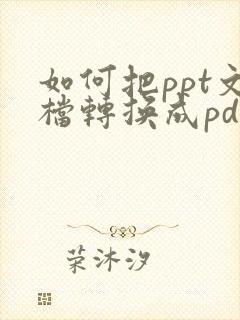 如何把ppt文
檔轉換成pd
荣沐汐